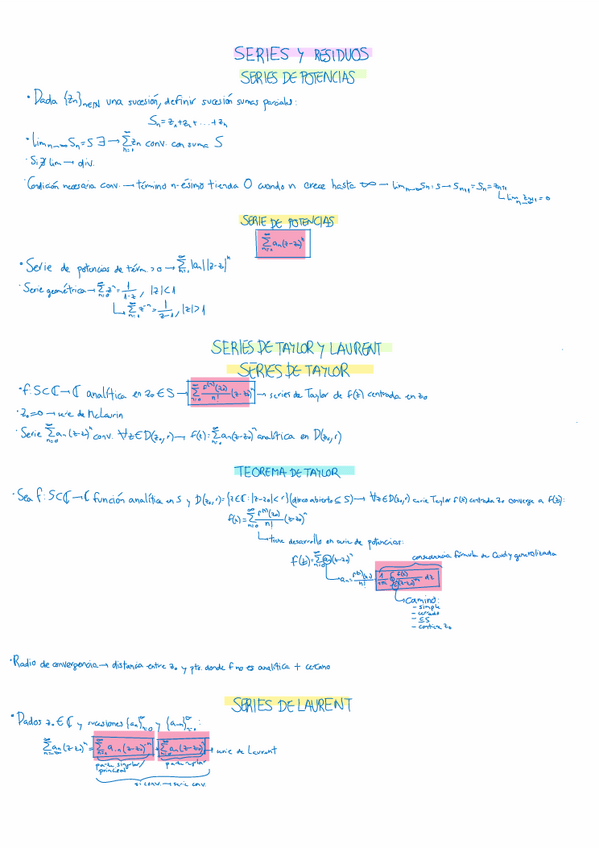 SERIES Y RESIDUOS
SERIES DE POTENCIAS
• Dada {zn}n∈ℕ una sucesión, definir sucesión sumas parciales:
Sn = z1 + z2 + ... + zn
• Lim n→∞ Sn = S ∃ → ∑ zn conv. con suma S
• Si ∄ lim → div.
• Condición necesaria conv. → término n-ésimo tienda 0 cuando n crece hasta ∞ → lim n→∞ Sn = S → Sn+1 = Sn = zn+1
↳ lim n→∞ zn+1 = 0
SERIE DE POTENCIAS
∑ an(z-z0)^n
• Serie de potencias de térm. > 0 → ∑ |an||z-z0|^n
• Serie geométrica → ∑ z^n = 1/(1-z), |z|<1
↳ ∑ z^-n = 1/(z-1), |z|>1
SERIES DE TAYLOR Y LAURENT
SERIES DE TAYLOR
• f: S⊂ℂ → ℂ analítica en z0 ∈ S → ∑ f^(n)(z0)/n! (z-z0)^n → series de Taylor de f(z) centrada en z0
• z0 = 0 → serie de McLaurin
• Serie ∑ an(z-z0)^n conv. ∀z∈D(z0,r) → f(z) = ∑ an(z-z0)^n analítica en D(z0,r)
TEOREMA DE TAYLOR
• Sea f: S⊂ℂ → ℂ función analítica en S y D(z0,r) = {z∈ℂ: |z-z0|<r} (disco abierto ⊆ S) → ∀z∈D(z0,r) serie Taylor f(z) centrada z0 converge a f(z):
f(z) = ∑ f^(n)(z0)/n! (z-z0)^n
↳ tiene desarrollo en serie de potencias:
consecuencia fórmula de Cauchy generalizada
f(z) = ∑ an(z-z0)^n
↳ an = f^(n)(z0)/n!
↳ Camino:
- simple
- cerrado
- ⊆S
- contiene z0
• Radio de convergencia → distancia entre z0 y pto. donde f no es analítica + cercano
SERIES DE LAURENT
• Dados z0 ∈ ℂ y sucesiones {an} y {a-n}:
∑ an(z-z0)^n = ∑ a-n(z-z0)^-n + ∑ an(z-z0)^n → serie de Laurent
parte singular/ parte regular
principal
si conv. → serie conv.